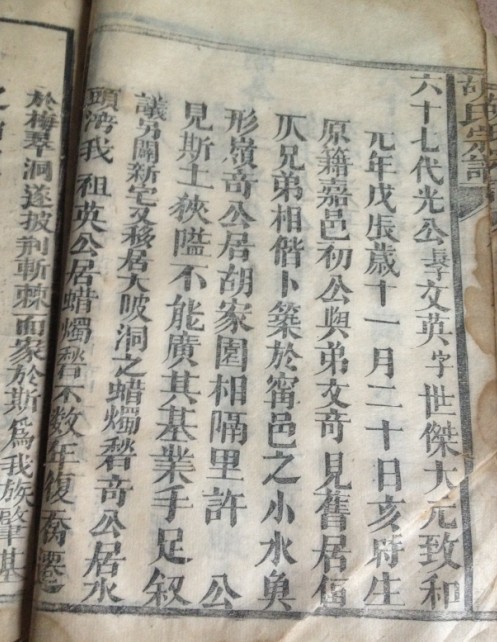 胡氏宗譜
六十七代光公長子文英字世傑大元致和
元年戊辰歲十一月二十日亥時生
原籍嘉邑初公與弟文奇見舊居偪
仄兄弟相偕卜築於甯邑之小水魚
形嶺奇公居胡家園相隔里許 公
見斯土狹隘不能廣其基業手足叙
議另闢新宅又移居大坡洞之蜡燭 奇公居水
頭湾我 祖英公居蜡燭 不数年復喬遷
於梅翠洞遂披荆斬棘而家於斯爲我族肇基
之